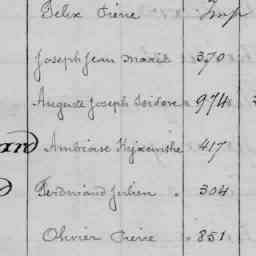 Félix Pierre Imp
Joseph Jean Marie 370
Auguste Joseph Isidore 974
Ambroise Hyacinthe 417
Ferdinand Julien 304
Olivier Pierre 851